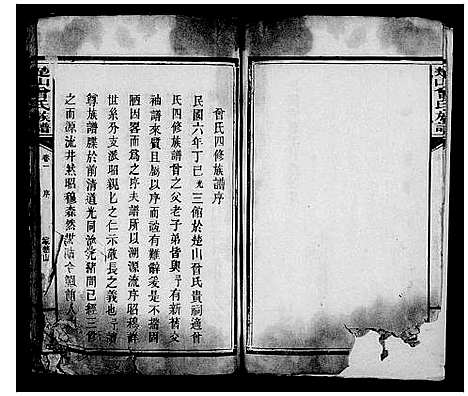 曾氏四修族譜序
民國六年丁巳光三館於楚山曾氏貴祠適曾
氏四修族譜曾之父老子弟皆與予有新舊交
袖譜來質且屬以序而誠有難辭爰是不揣固
陋因畧而爲之序夫譜所以溯源流序昭穆詳
世系分支派昭親親之仁示敬長之義也
尊族譜牒於前清道光同治光緒間已經三修
之而源流井然昭穆森然
楚山曾氏族譜
卷一
序
楚山曾氏族譜